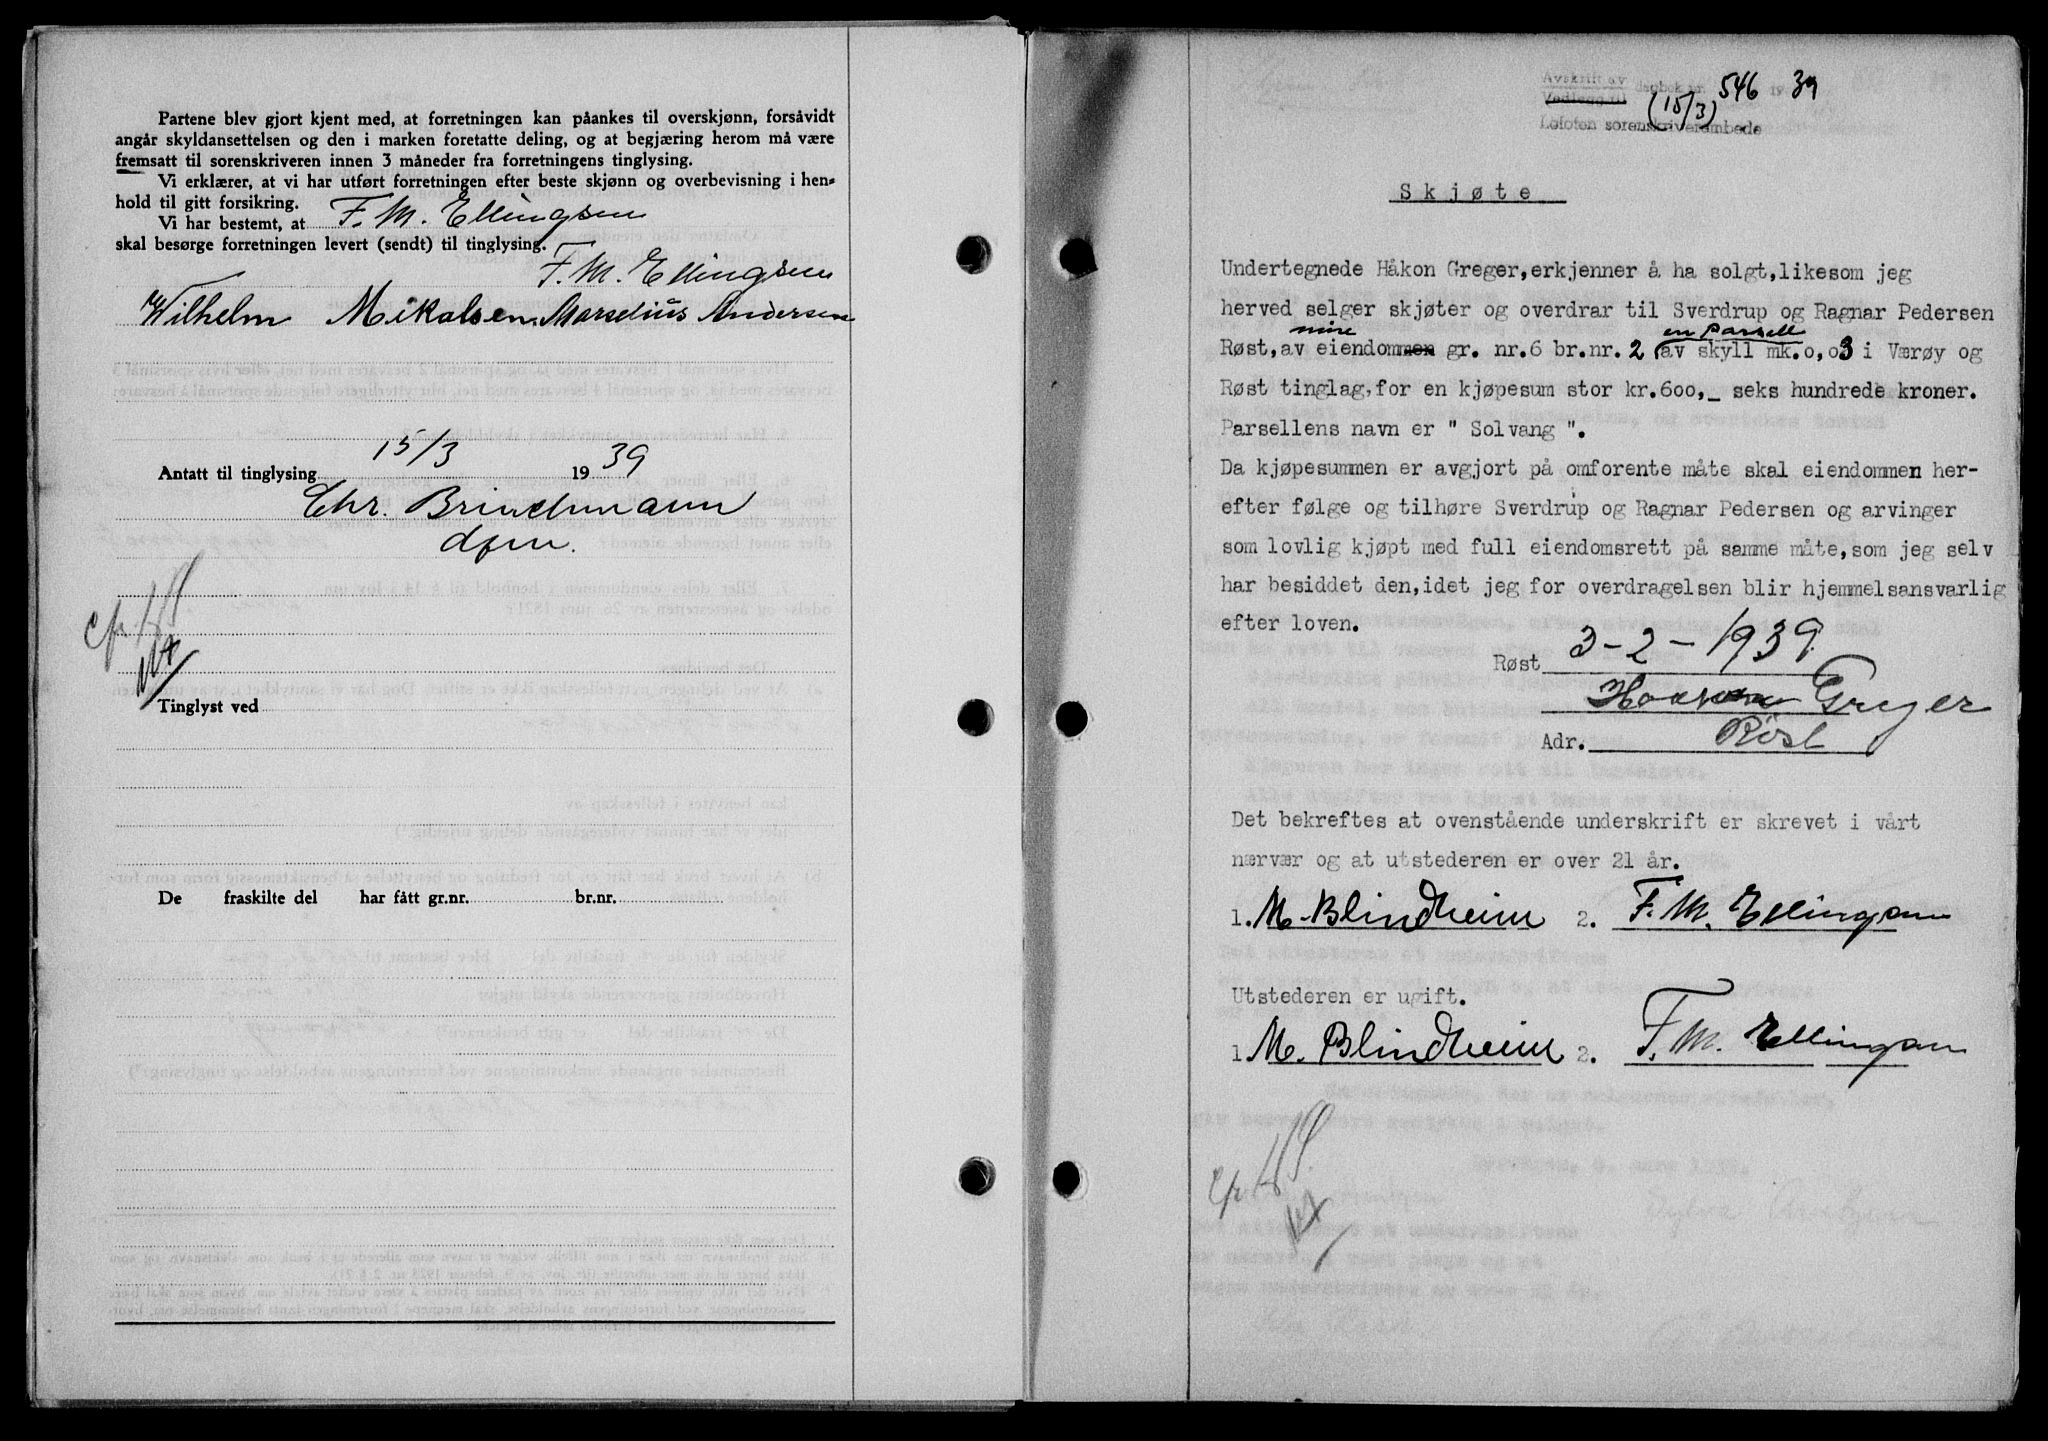 Partene blev gjort kjent med, at forretningen kan påankes til overskjønn, forsåvidt
angår skyldansettelsen og den i marken foretatte deling, og at begjæring herom må være
fremsatt til sorenskriveren innen 3 måneder fra forretningens tinglysing.
Vi erklærer, at vi har utført forretningen efter beste skjønn og overbevisning i hen-
hold til gitt forsikring.
Vi har bestemt, at F. M. Ellingsen
skal besørge forretningen levert (sendt) til tinglysing.
F. M. Ellingsen
Wilhelm Mikalsen Marselius Andersen
Antatt til tinglysing 15/3 1939
Chr. Brinchmann
dfm.
Tinglyst ved
De fraskilte del har fått gr.nr. br.nr.
Avskrift av
Vedlegg til dagbok nr. 546 1939
(15/3)
Lofoten sorenskriverembede
Skjøte
Undertegnede Håkon Greger, erkjenner å ha solgt, likesom jeg
herved selger skjøter og overdrar til Sverdrup og Ragnar Pedersen
mine en parsell
Røst, av eiendommen gr. nr.6 br.nr. 2 av skyll mk.o,o3 i Værøy og
Røst tinglag, for en kjøpesum stor kr.600,_ seks hundrede kroner.
Parsellens navn er " Solvang ".
Da kjøpesummen er avgjort på omforente måte skal eiendommen her-
efter følge og tilhøre Sverdrup og Ragnar Pedersen og arvinger
som lovlig kjøpt med full eiendomsrett på samme måte, som jeg selv
har besiddet den, idet jeg for overdragelsen blir hjemmelsansvarlig
efter loven.
Røst 3-2-1939.
Haakon Greger
Adr. Røst
Det bekreftes at ovenstående underskrift er skrevet i vårt
nærvær og at utstederen er over 21 år.
1. M. Blindheim 2. F. M. Ellingsen
Utstederen er ugift.
1. M. Blindheim 2. F. M. Ellingsen